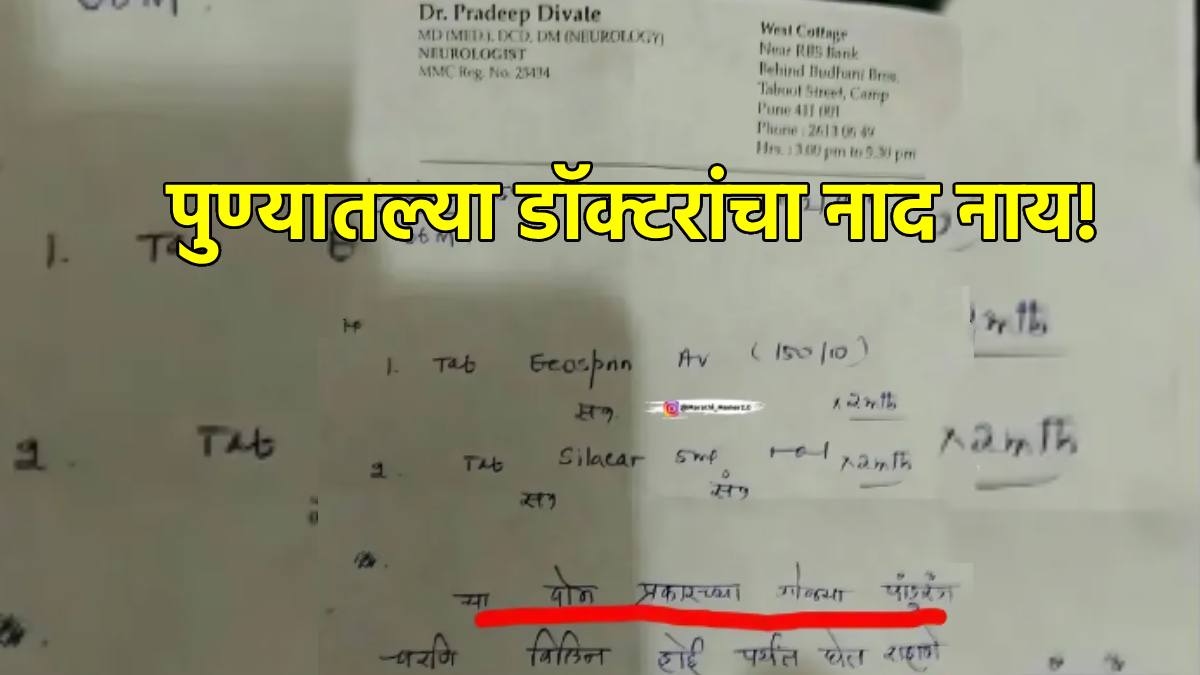 Dr. Pradeep Divate
MD (MED.), DCD, DM (NEUROLOGY)
NEUROLOGIST
MMC Reg. No. 23434
West Cottage
Near RBS Bank
Behind Budhani Bros.
Taboot Street, Camp
Pune 411 001
Phone : 2613 06 49
Hrs. : 3.00 pm to 5.30 pm
पुण्यातल्या डॉक्टरांचा नाद नाय!
1. Tab
1. Tab Ecosprin AV (150/10)
x 2 mth
2. Tab Silacar 5mg x 2 mth
2. Tab x 2 mth
या दोन प्रकारच्या गोळ्या पांडुरंग
चरणि विलिन होई पर्यंत घेत राहाणे